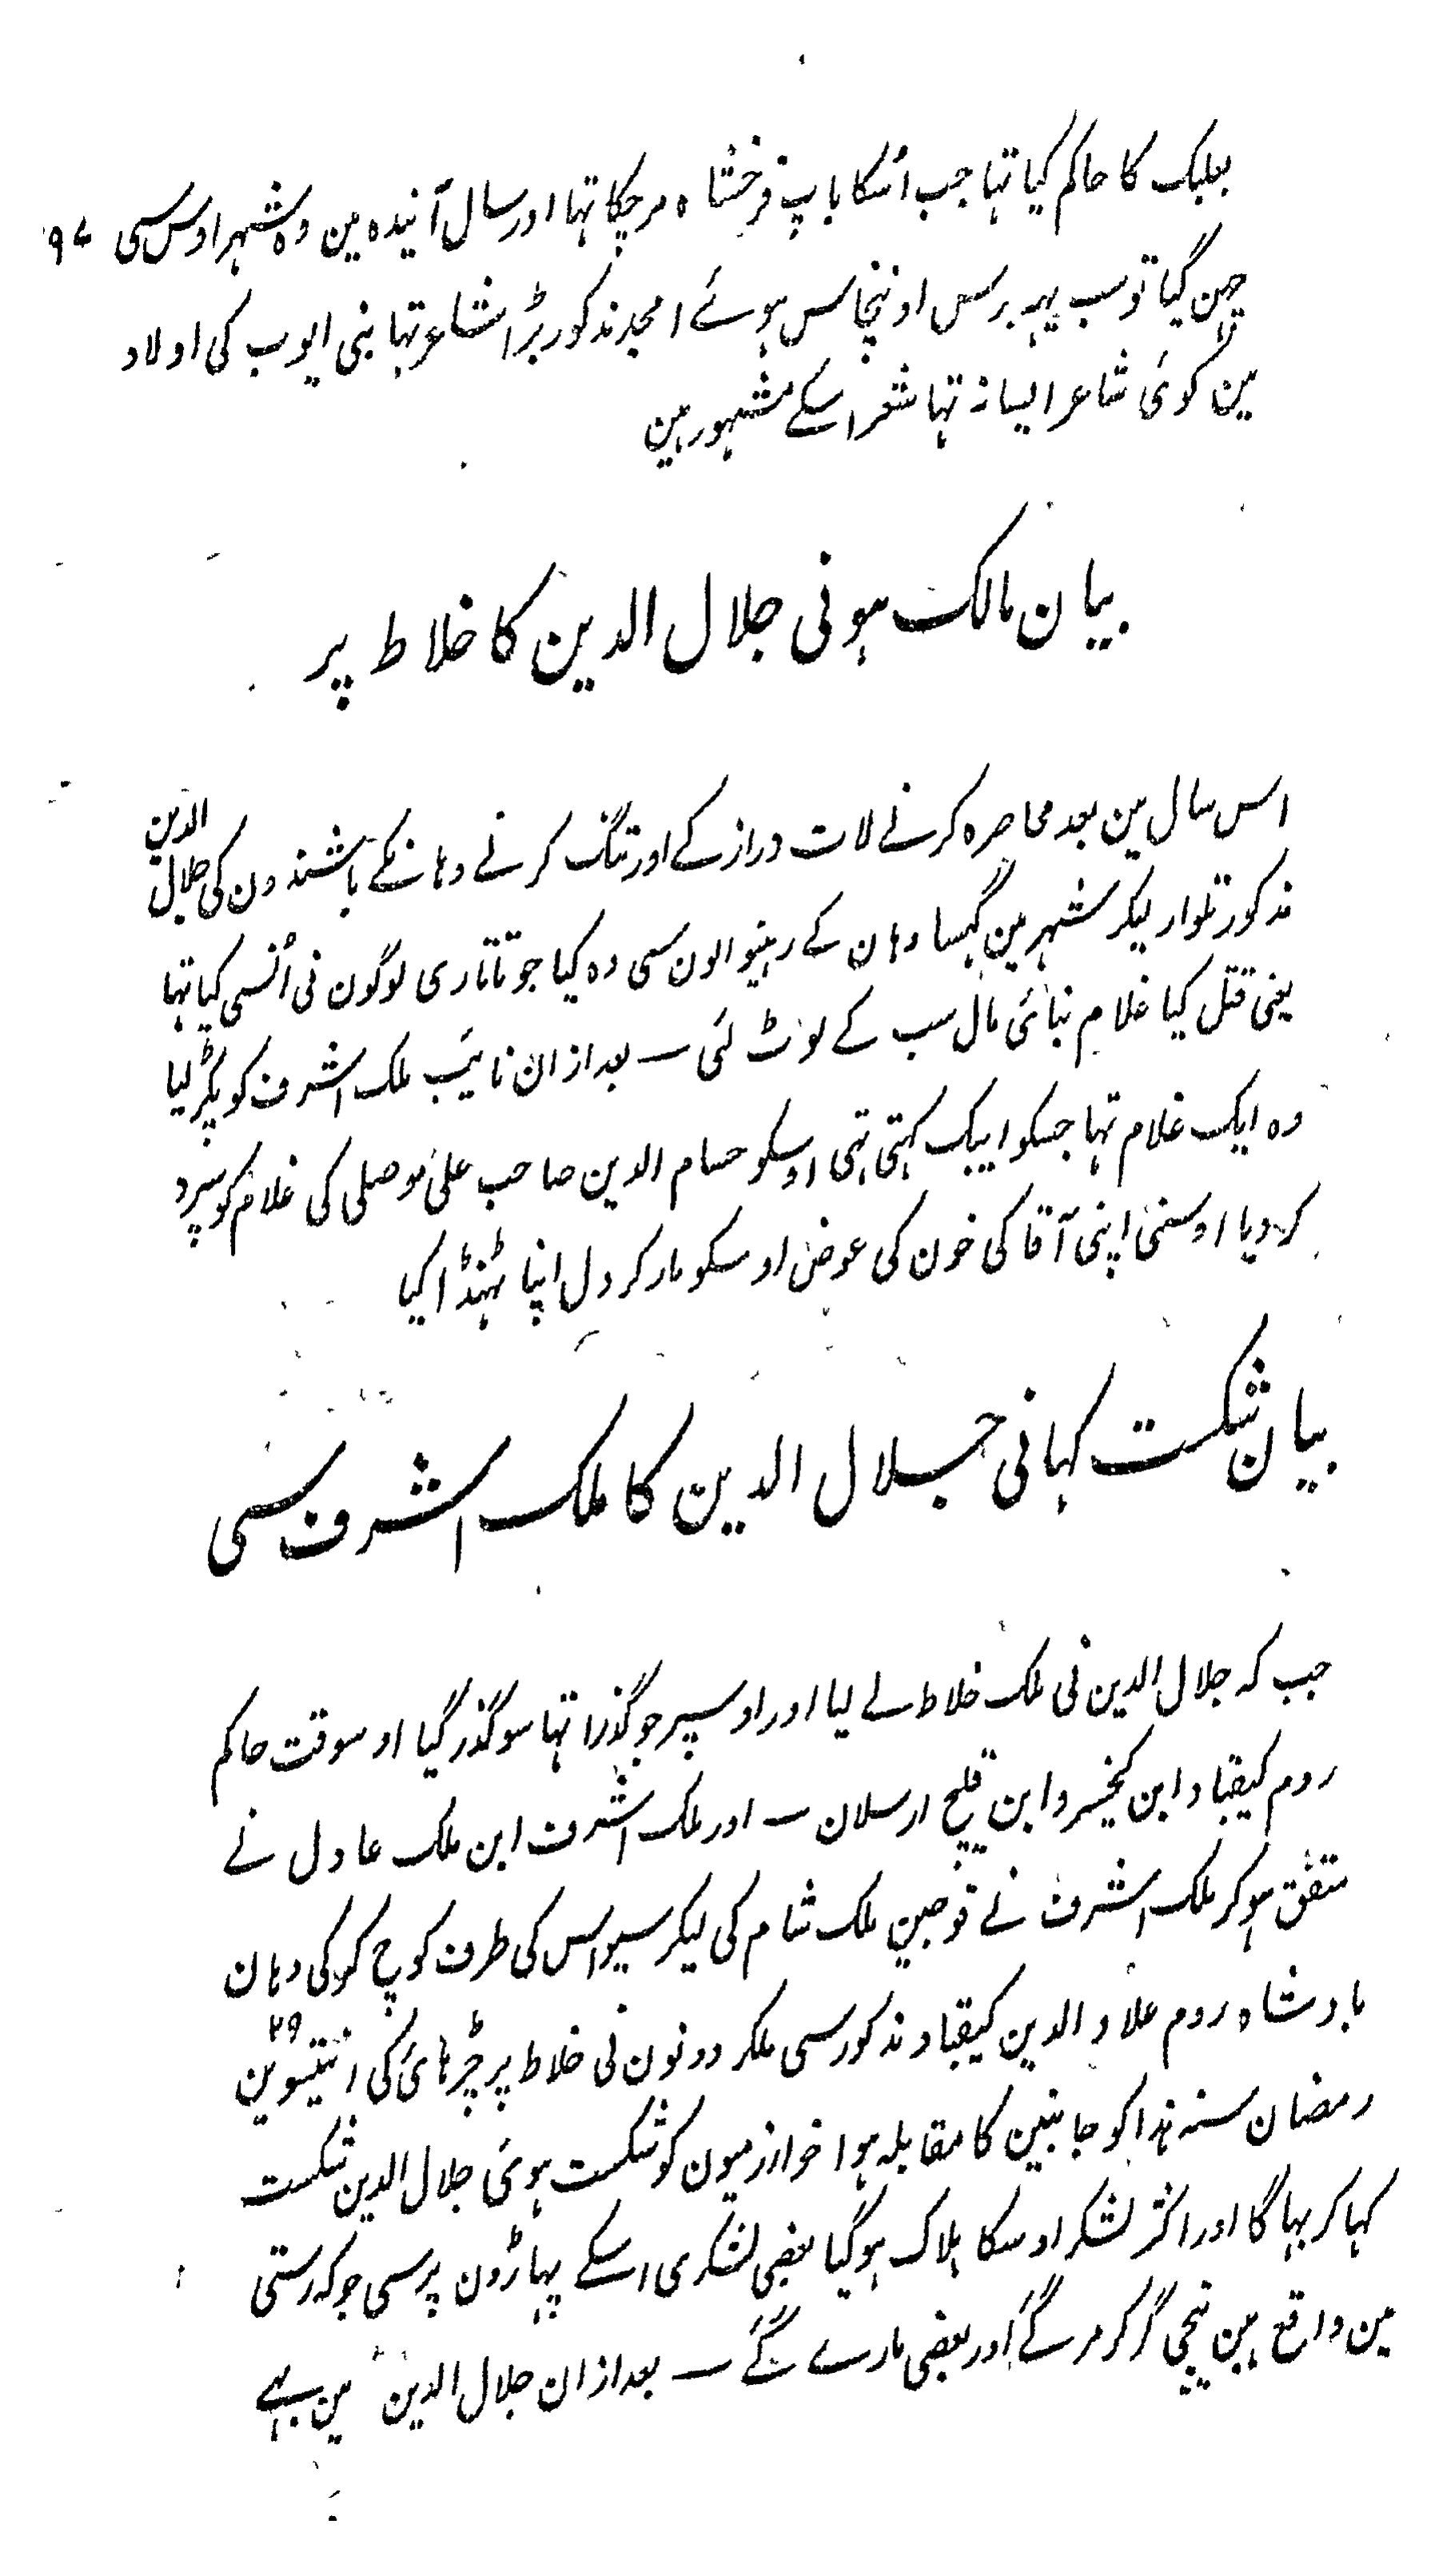 بعلبک کا حاکم کیا تہا جب اُسکا باپ فرخشاہ مرچکا تہا اور سال آئیندہ مین وہ شہر اوس سی
چہن گیا تو سب یہہ برس اونچاس ہوئے امجد مذکور بڑا شاعر تہا بنی ایوب کی اولاد
مین کوئی شاعر ایسا نہ تہا شعر اسکے مشہور ہین
بیان مالک ہونی جلال الدین کا خلاط پر
اس سال مین بعد محاصرہ کرنے لات دراز کے اور تنگ کرنے وہانکے باشندون کی جلال الدین
مذکور تلوار لیکر شہر مین گہسا وہان کے رہنیوالون سی وہ کیا جو تاتاری لوگون نی اُنسی کیا تہا
یعنی قتل کیا غلام بنائی مال سب کے لوٹ لئی ـ بعد ازان نائیب ملک اشرف کو پکڑ لیا
وہ ایک غلام تہا جسکو ایبک کہتی تہی اوسکو حسام الدین صاحب علی موصلی کی غلام کو سپرد
کر دیا اوسنی اپنی آقا کی خون کی عوض اوسکو مار کر دل اپنا ٹہنڈا کیا
بیان شکست کہانی جلال الدین کا ملک اشرف سی
جب کہ جلال الدین نی ملک خلاط لے لیا اور اوسپر جو گذرا تہا سو گذر گیا اوسوقت حاکم
روم کیقباد ابن کیخسرو ابن قلیج ارسلان ـ اور ملک اشرف ابن ملک عادل نے
متفق ہو کر ملک اشرف نے فوجین ملک شام کی لیکر سیواس کی طرف کوچ کرکی وہان
بادشاہ روم علاو الدین کیقباد مذکور سی ملکر دونون نی خلاط پر چڑہائی کی انتیسوین ۲۹
رمضان سنہ ہذا کو جانبین کا مقابلہ ہوا خوارزمیون کو شکست ہوئی جلال الدین شکست
کہا کر بہاگا اور اکثر لشکر اوسکا ہلاک ہو گیا بعضی لشکری اسکے پہاڑون پر سی جو کہ رستی
مین واقع ہین نیچی گر کر مر گے اور بعضی مارے گئے ـ بعد ازان جلال الدین مین